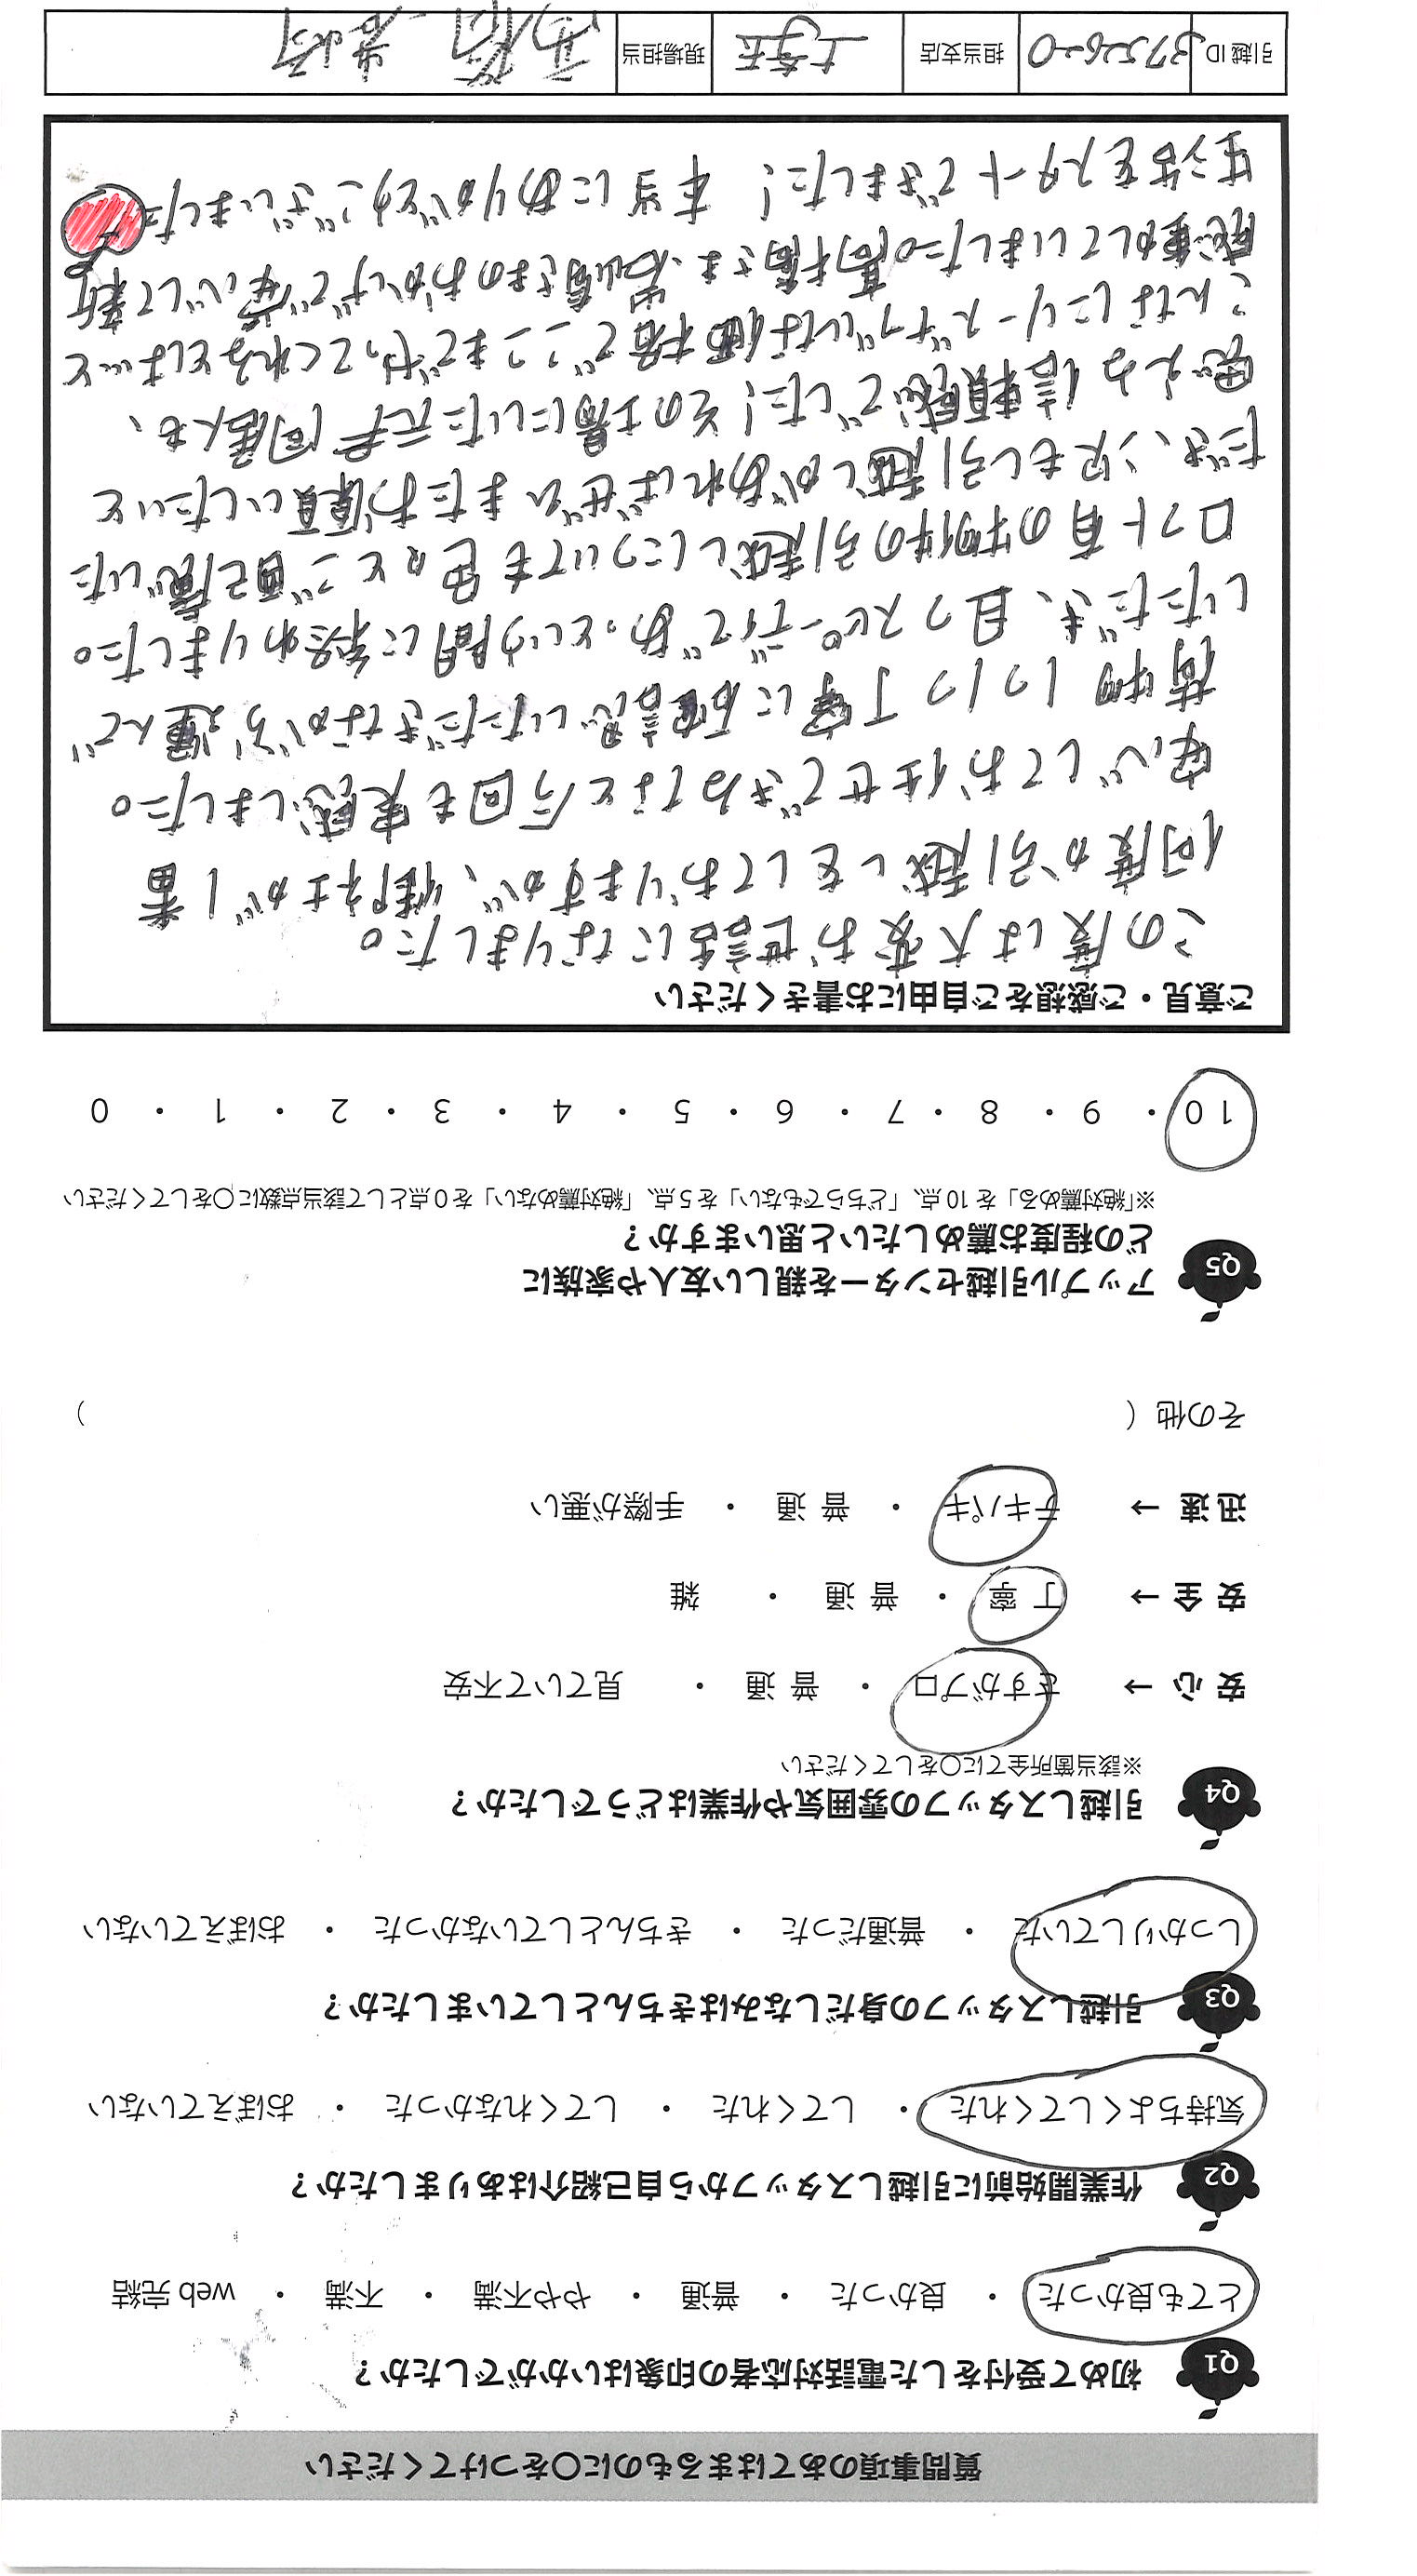 質問事項のあてはまるものに〇をつけてください
Q1 初めて受付をした電話対応者の印象はいかがでしたか？
とても良かった ・ 良かった ・ 普通 ・ やや不満 ・ 不満 ・ web 完結
Q2 作業開始前に引越しスタッフから自己紹介はありましたか？
気持ちよくしてくれた ・ してくれた ・ してくれなかった ・ おぼえていない
Q3 引越しスタッフの身だしなみはきちんとしていましたか？
しっかりしていた ・ 普通だった ・ きちんとしていなかった ・ おぼえていない
Q4 引越しスタッフの雰囲気や作業はどうでしたか？
※該当箇所全てに〇をしてください
安心 → さすがプロ ・ 普通 ・ 見ていて不安
安全 → 丁寧 ・ 普通 ・ 雑
迅速 → テキパキ ・ 普通 ・ 手際が悪い
その他（ ）
Q5 アップル引越センターを親しい友人や家族に
どの程度お薦めしたいと思いますか？
※「絶対薦める」を 10 点、「どちらでもない」を 5 点、「絶対薦めない」を 0 点として該当点数に〇をしてください
10 ・ 9 ・ 8 ・ 7 ・ 6 ・ 5 ・ 4 ・ 3 ・ 2 ・ 1 ・ 0
ご意見・ご感想をご自由にお書きください
この度は大変お世話になりました。
何度か引越しをしておりますが、御社が1番
安心してお任せできるなと今回も実感しました。
荷物1つ1つ丁寧に確認いただきながら運んで
いただき、且つスピーディであっという間に終わりました。
ロフト有の物件の引越しについても色々とご配慮いた
だき、次もし引越しがあればぜひまたお願いしたいと
思える信頼感でした！その場にいた元同居人も、
こんなにリーズナブルな価格でここまでやってくれるとは…と
感動していました。髙橋さま、岩崎さまのおかげで安心して新
生活をスタートできました！本当にありがとうございました
引越ID 3752620 担当支店 現場担当 髙橋 岩崎